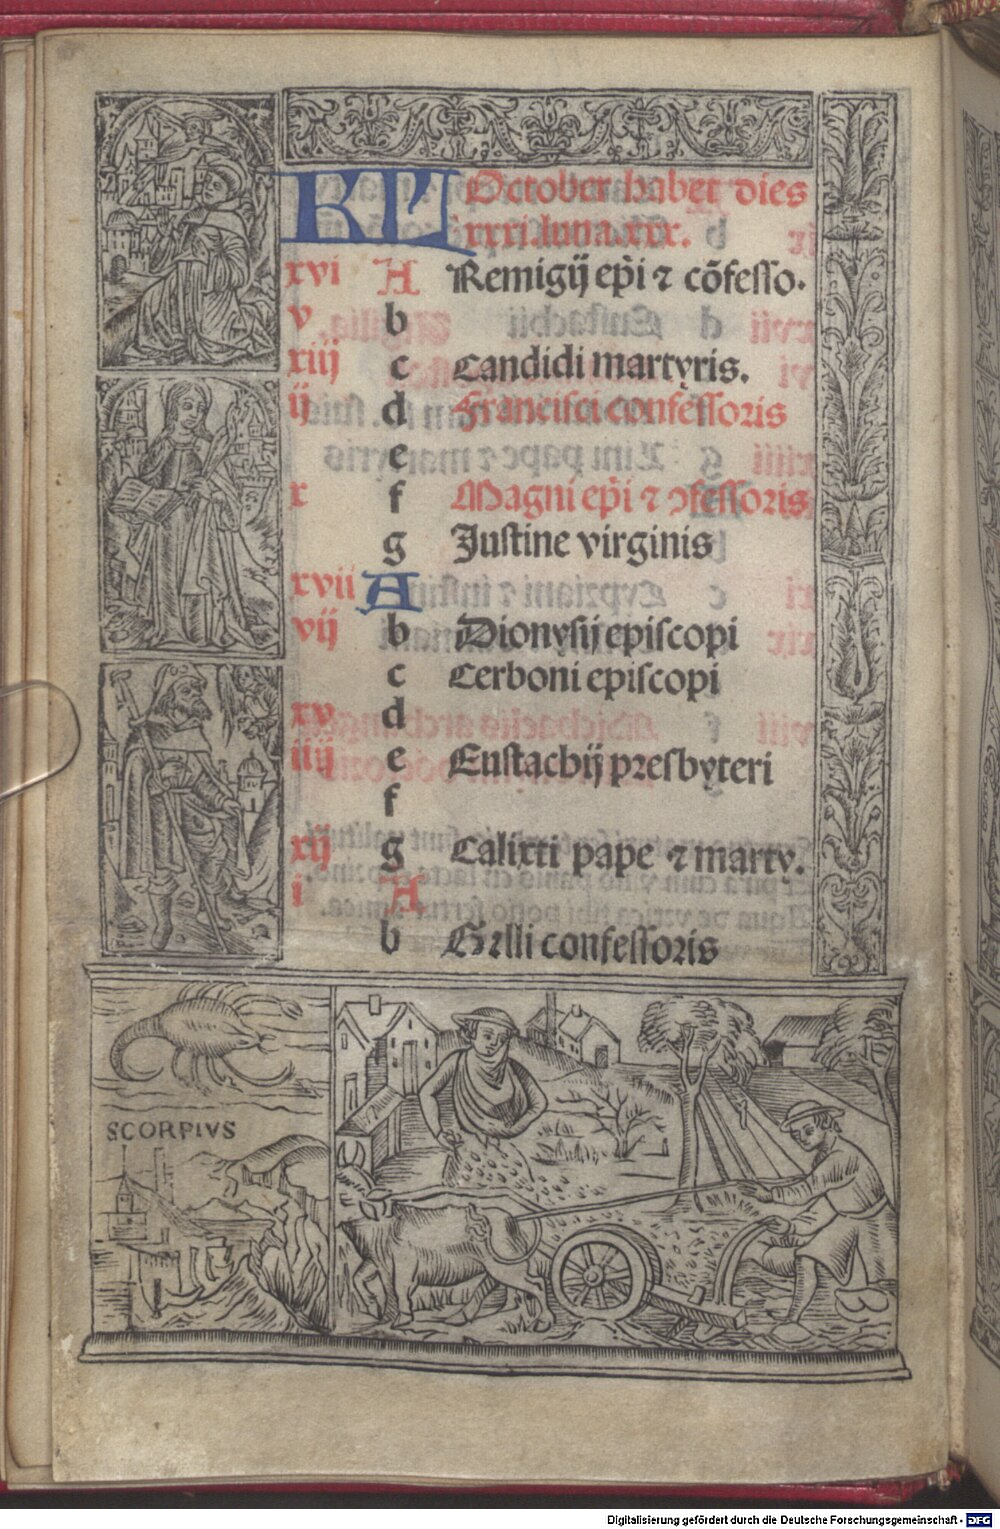 KL October habet dies
xxxi. luna. xxx.
xvi A Remigij ep̄i ⁊ cōfesso.
v b
xiij c Candidi martyris.
ij d Francisci confessoris
e
x f Magni ep̄i ⁊ ꝯfessoris
g Justine virginis
xvii A
vij b Dionysij episcopi
c Cerboni episcopi
xv d
iiij e Eustachij presbyteri
f
xij g Calixti pape ⁊ marty.
i A
b Galli confessoris
SCORPIVS
Digitalisierung gefördert durch die Deutsche Forschungsgemeinschaft - DFG